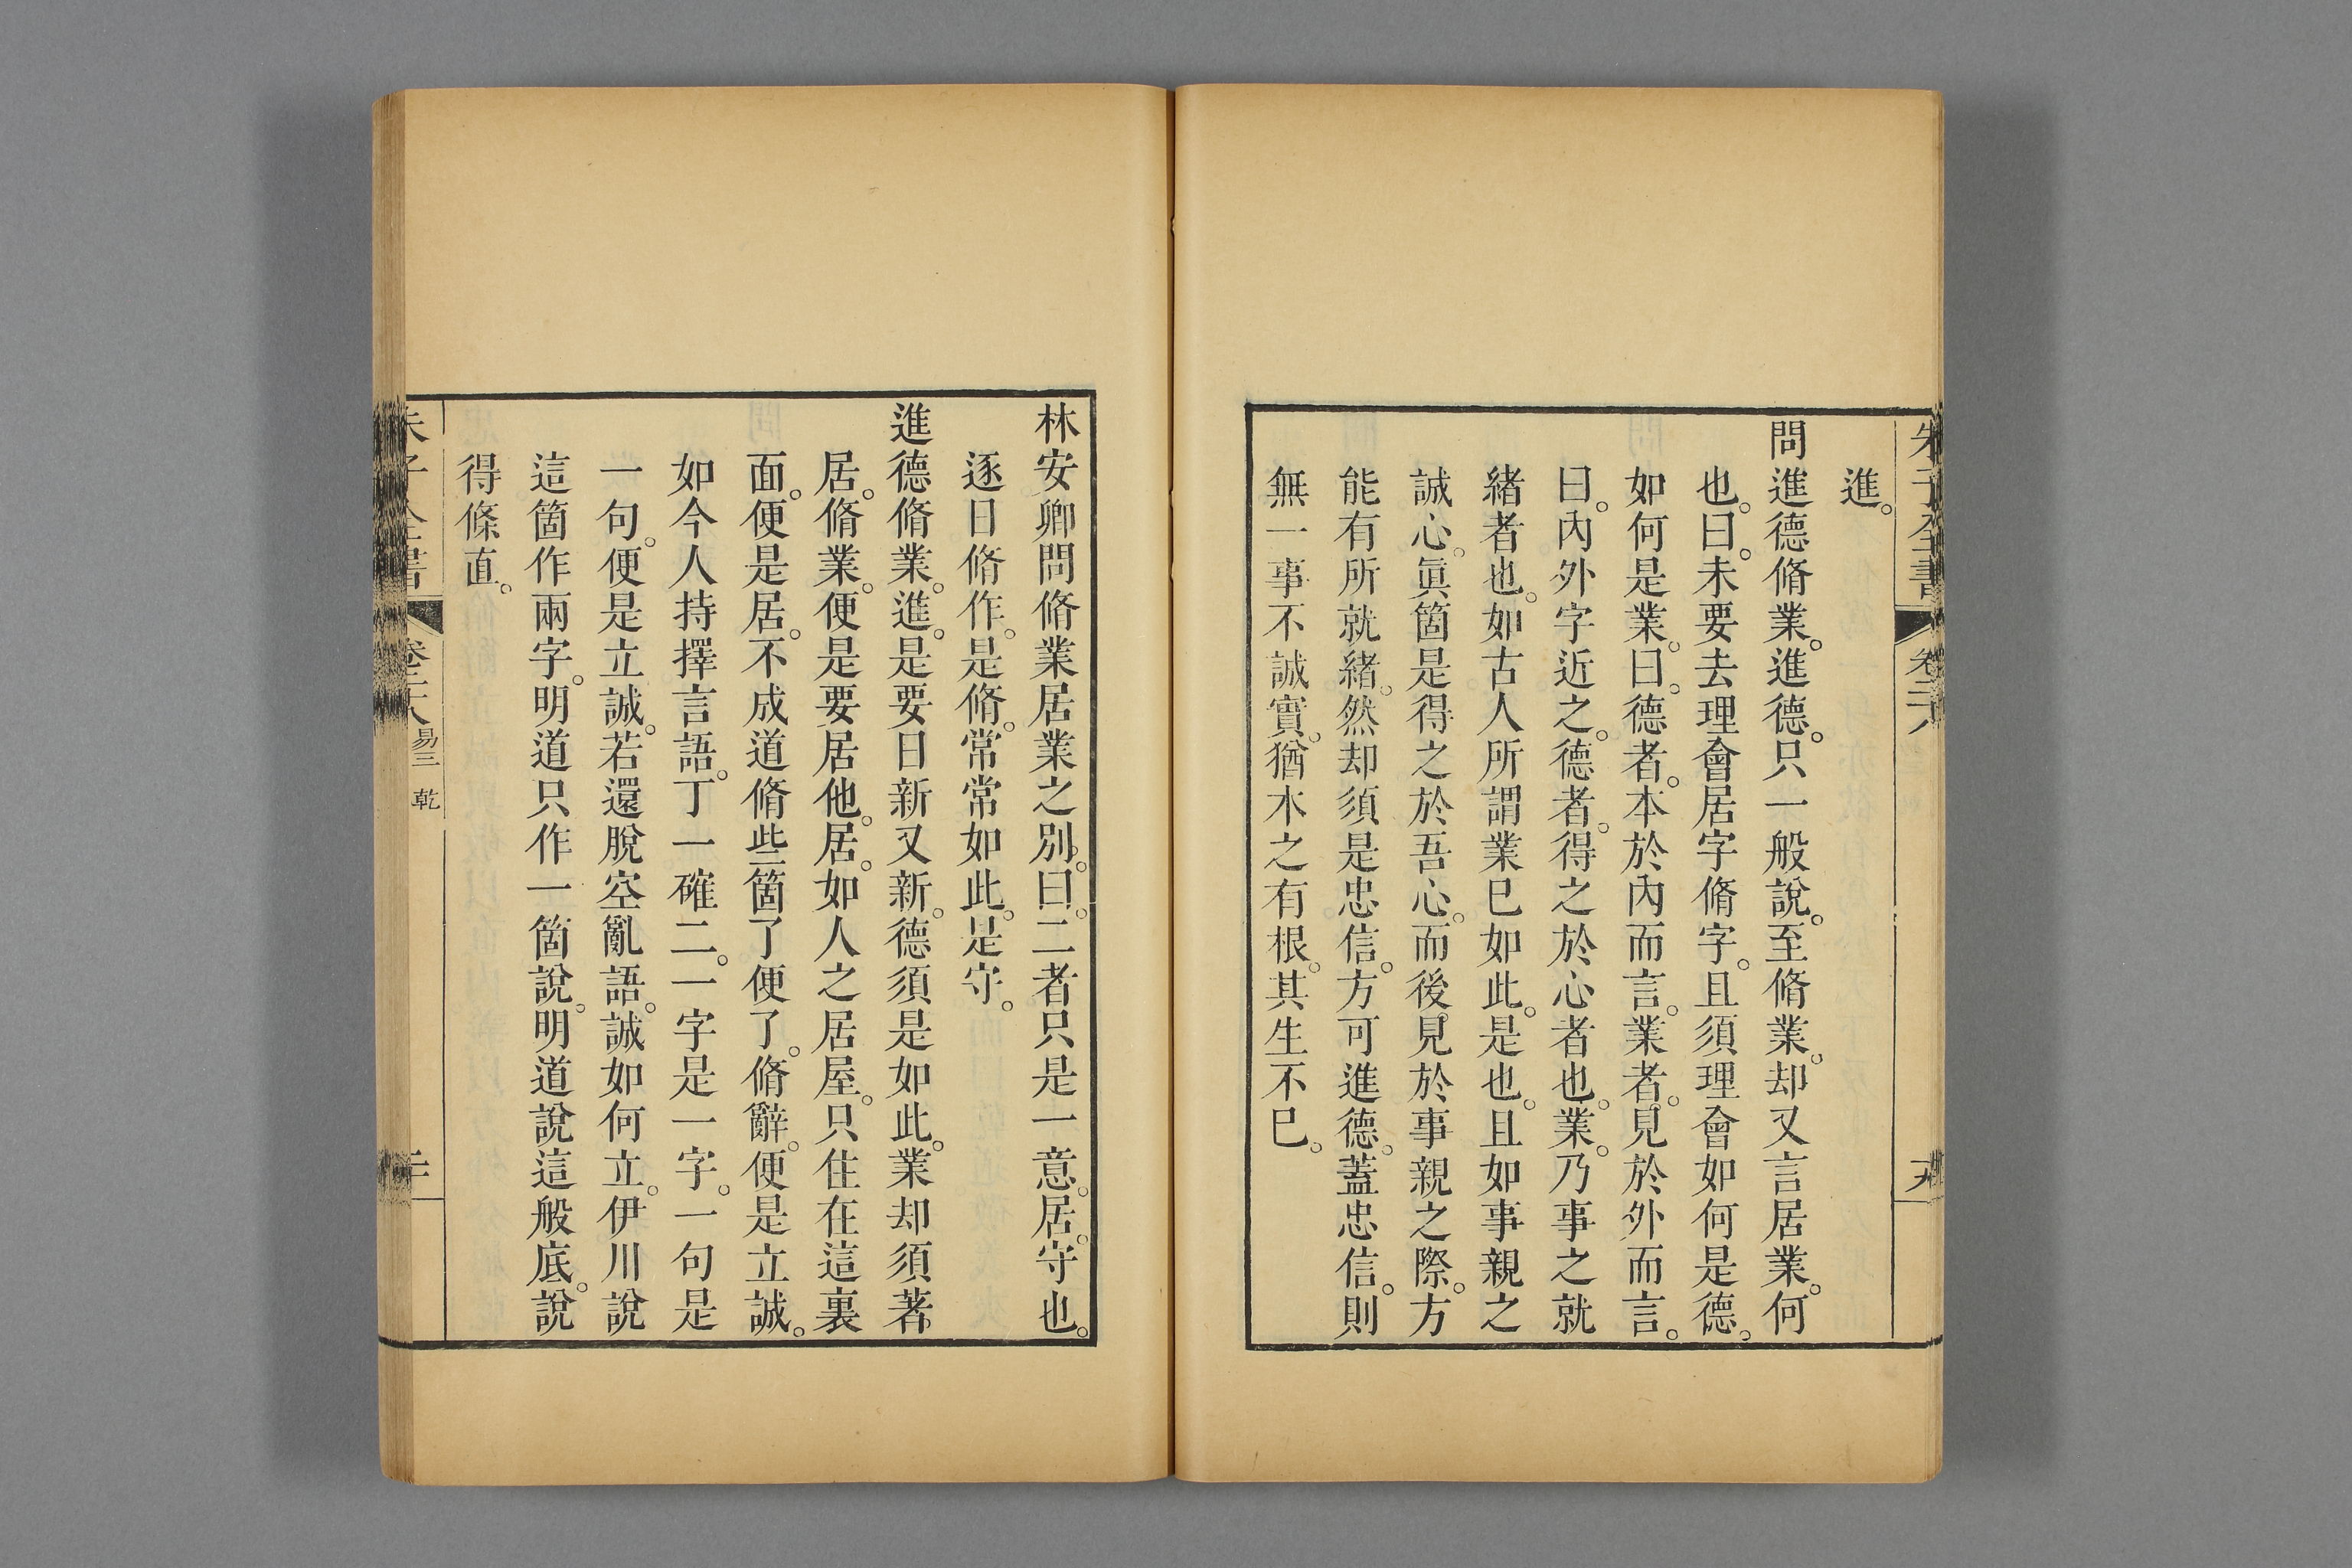 朱子全書 卷二十八
進。
問進德脩業。進德。只一般說。至脩業。却又言居業。何
也。曰。未要去理會居字脩字。且須理會如何是德。
如何是業。曰。德者。本於內而言。業者。見於外而言。
曰。內外字近之。德者。得之於心者也。業。乃事之就
緒者也。如古人所謂業已如此。是也。且如事親之
誠心。眞箇是得之於吾心。而後見於事親之際。方
能有所就緒。然却須是忠信。方可進德。蓋忠信。則
無一事不誠實。猶木之有根。其生不已。
林安卿問脩業居業之別。曰。二者只是一意。居。守也。
逐日脩作。是脩。常常如此。是守。
進德脩業。進。是要日新又新。德須是如此。業却須著
居。脩業。便是要居他。居。如人之居屋。只住在這裏
面。便是居。不成道脩些箇了便了。脩辭。便是立誠。
如今人持擇言語。丁一確二。一字是一字。一句是
一句。便是立誠。若還脫空亂語。誠如何立。伊川說
這箇作兩字。明道只作一箇說。明道說這般底。說
得條直。
朱子全書 卷二十八 易三 乾